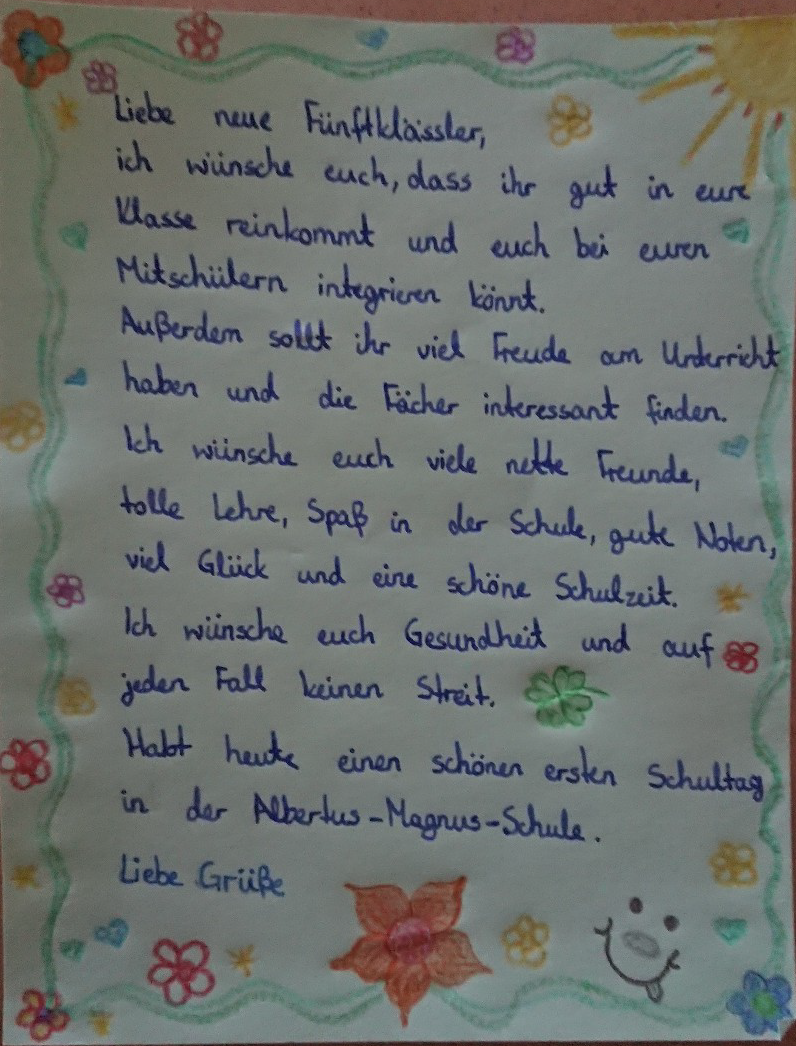 Liebe neue Fünftklässler,
ich wünsche euch, dass ihr gut in eure
Klasse reinkommt und euch bei euren
Mitschülern integrieren könnt.
Außerdem sollt ihr viel Freude am Unterricht
haben und die Fächer interessant finden.
Ich wünsche euch viele nette Freunde,
tolle Lehre, Spaß in der Schule, gute Noten,
viel Glück und eine schöne Schulzeit.
Ich wünsche euch Gesundheit und auf
jeden Fall keinen Streit.
Habt heute einen schönen ersten Schultag
in der Albertus-Magnus-Schule.
Liebe Grüße